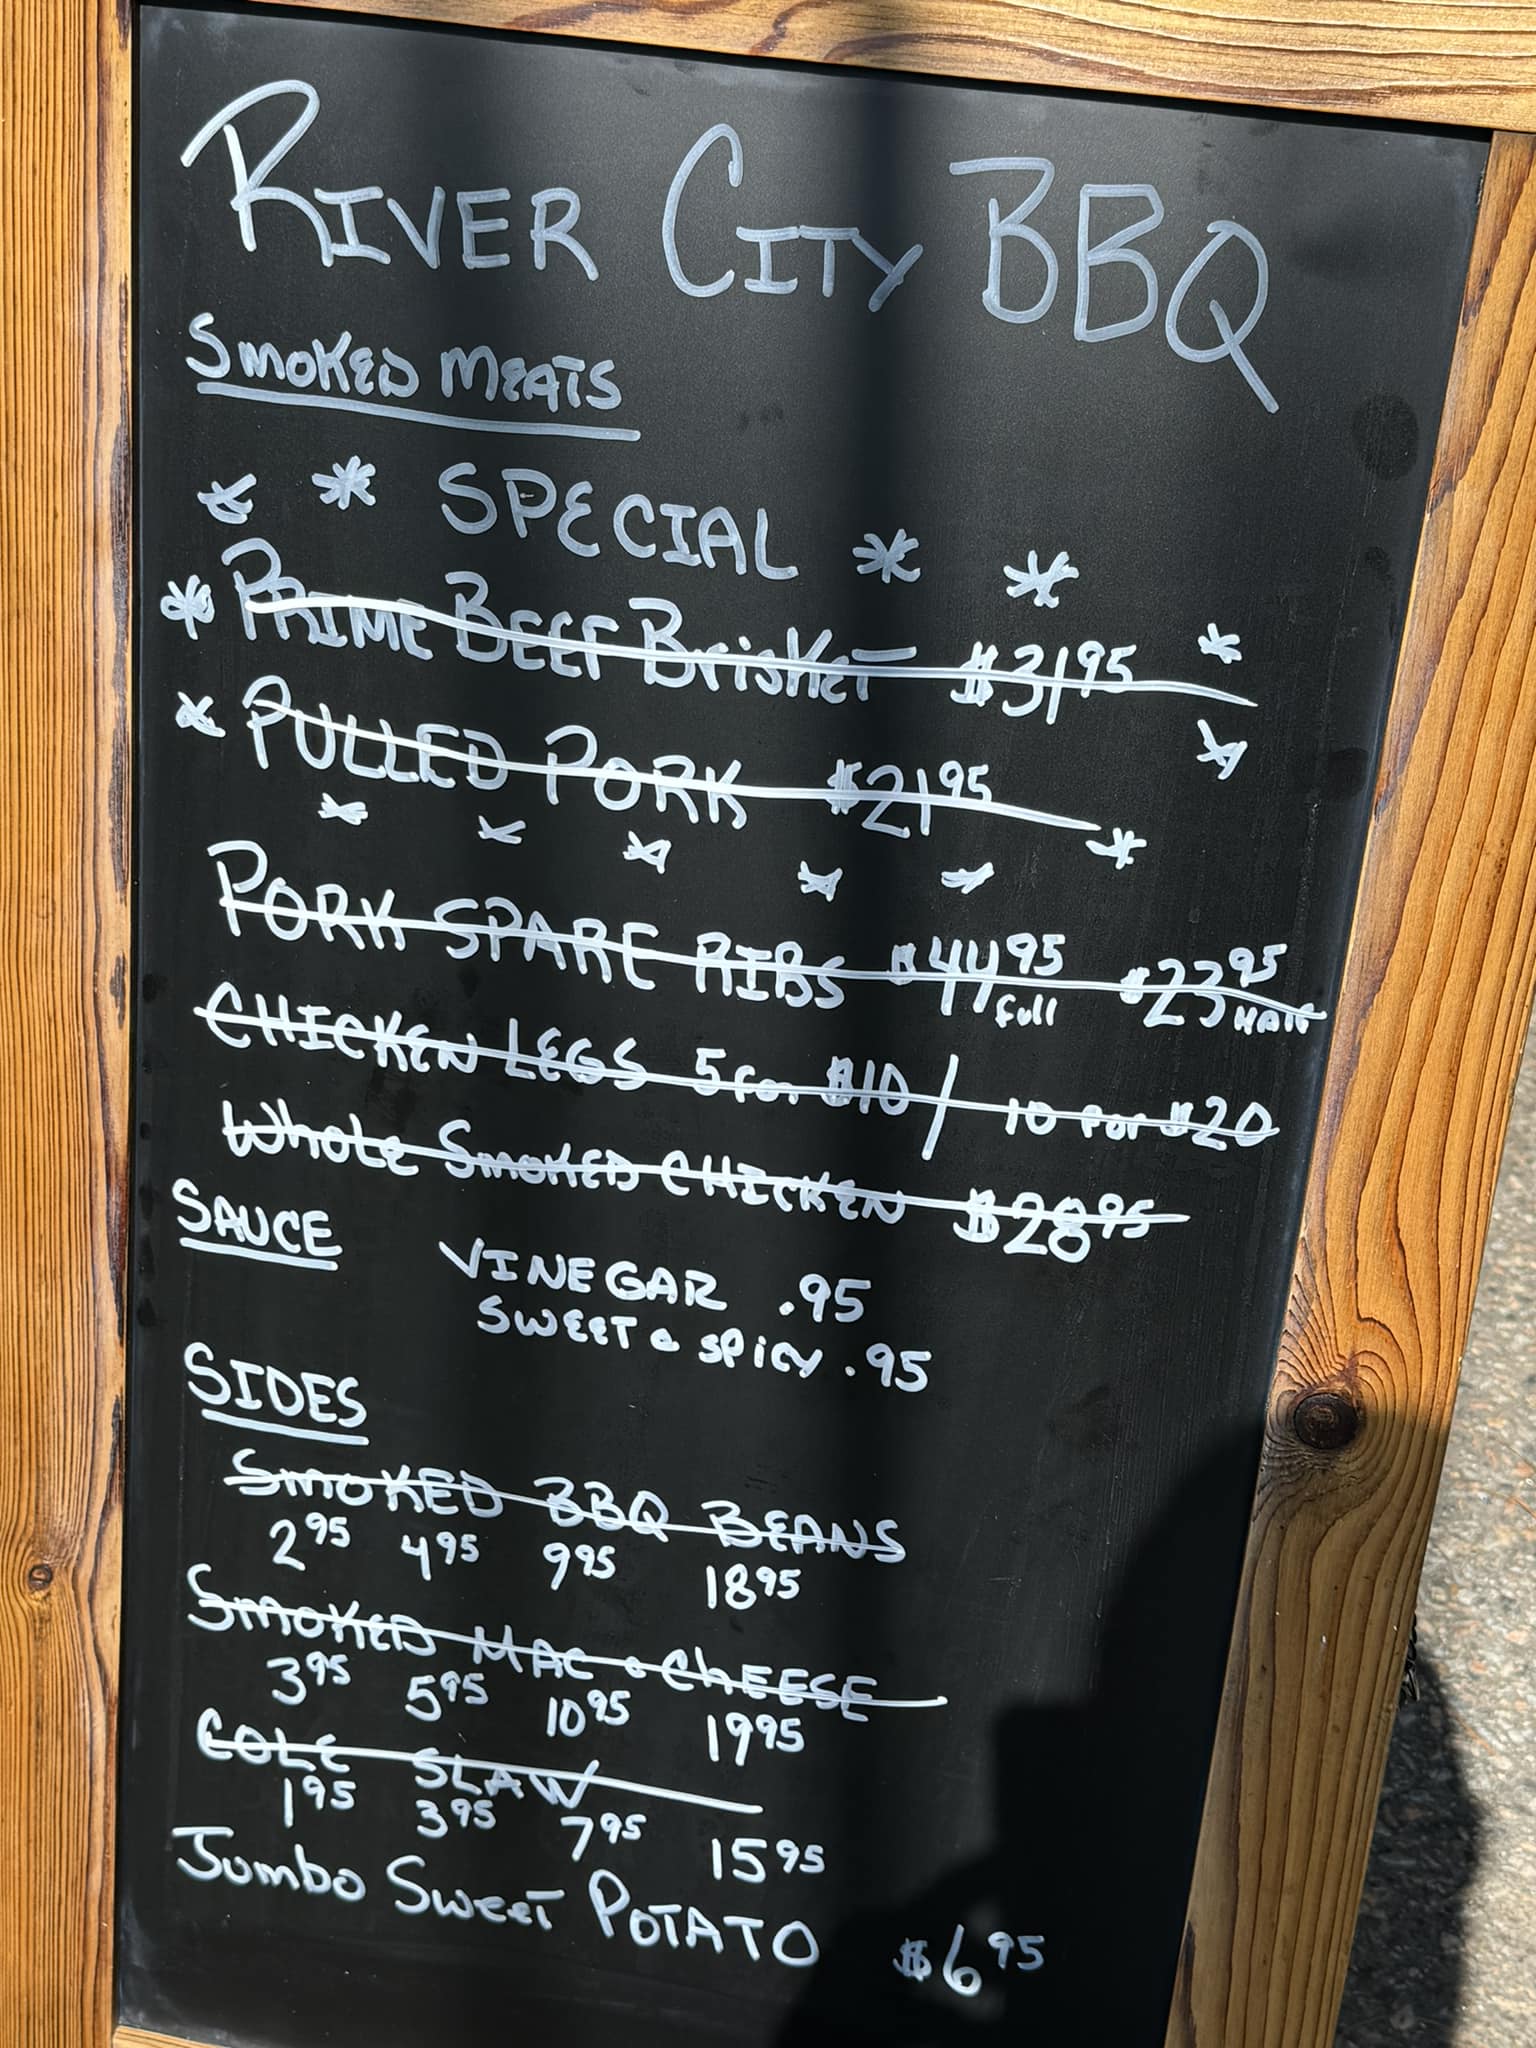 RIVER CITY BBQ
SMOKED MEATS
* * SPECIAL * *
* PRIME BEEF BrisKET $31.95 *
* PULLED PORK $21.95 *
* * * * * *
PORK SPARE RIBS $44.95 full $23.95 HALF
CHICKEN LEGS 5 for $10 / 10 for $20
Whole SMOKED CHICKEN $28.95
SAUCE VINEGAR .95
SWEET & SPICY .95
SIDES
SMOKED BBQ BEANS
2.95 4.95 9.95 18.95
SMOKED MAC & CHEESE
3.95 5.95 10.95 19.95
COLE SLAW
1.95 3.95 7.95 15.95
Jumbo SWEET POTATO $6.95